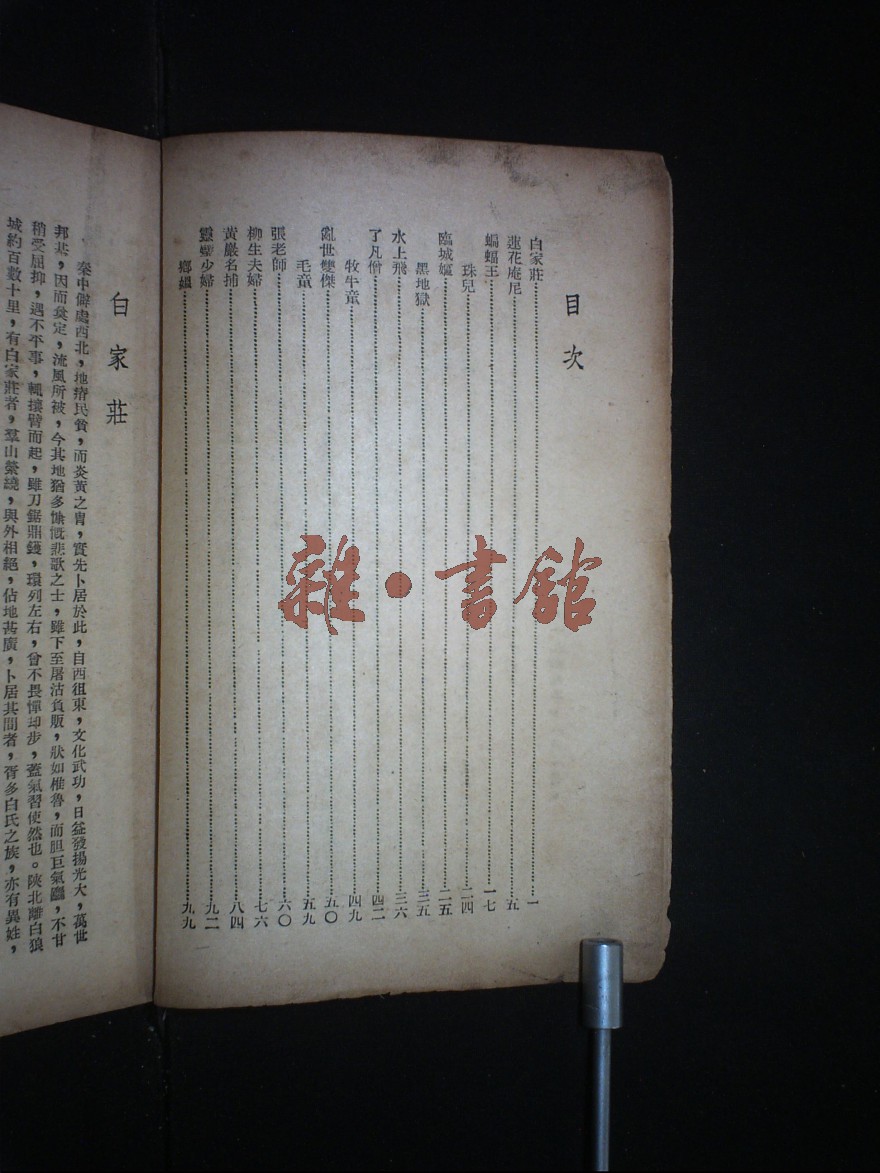 目次
白家莊 一
蓮花庵尼 五
蝙蝠王 一七
珠兒 二四
臨城嫗 二五
黑地獄 三五
水上飛 三六
了凡僧 四二
牧牛童 四九
亂世雙傑 五〇
毛童 五九
張老師 六〇
柳生夫婦 七六
黃巖名捕 八四
少婦 九二
鄉嫗 九九
雜·書館
白家莊
秦中僻處西北，地瘠民貧，而炎黃之胄，實先卜居於此，自西徂東，文化武功，日益發揚光大，萬世
邦基，因而奠定，流風所被，今其地猶多慷慨悲歌之士，雖下至屠沽負販，狀如椎魯，而胆巨氣麤，不甘
稍受屈抑，遇不平事，輒攘臂而起，雖刀鋸鼎鑊，環列左右，曾不畏憚却步，蓋氣習使然也。陝北離白狼
城約百數十里，有白家莊者，羣山縈繞，與外相絕，佔地甚廣，卜居其間者，胥多白氏之族，亦有異姓，